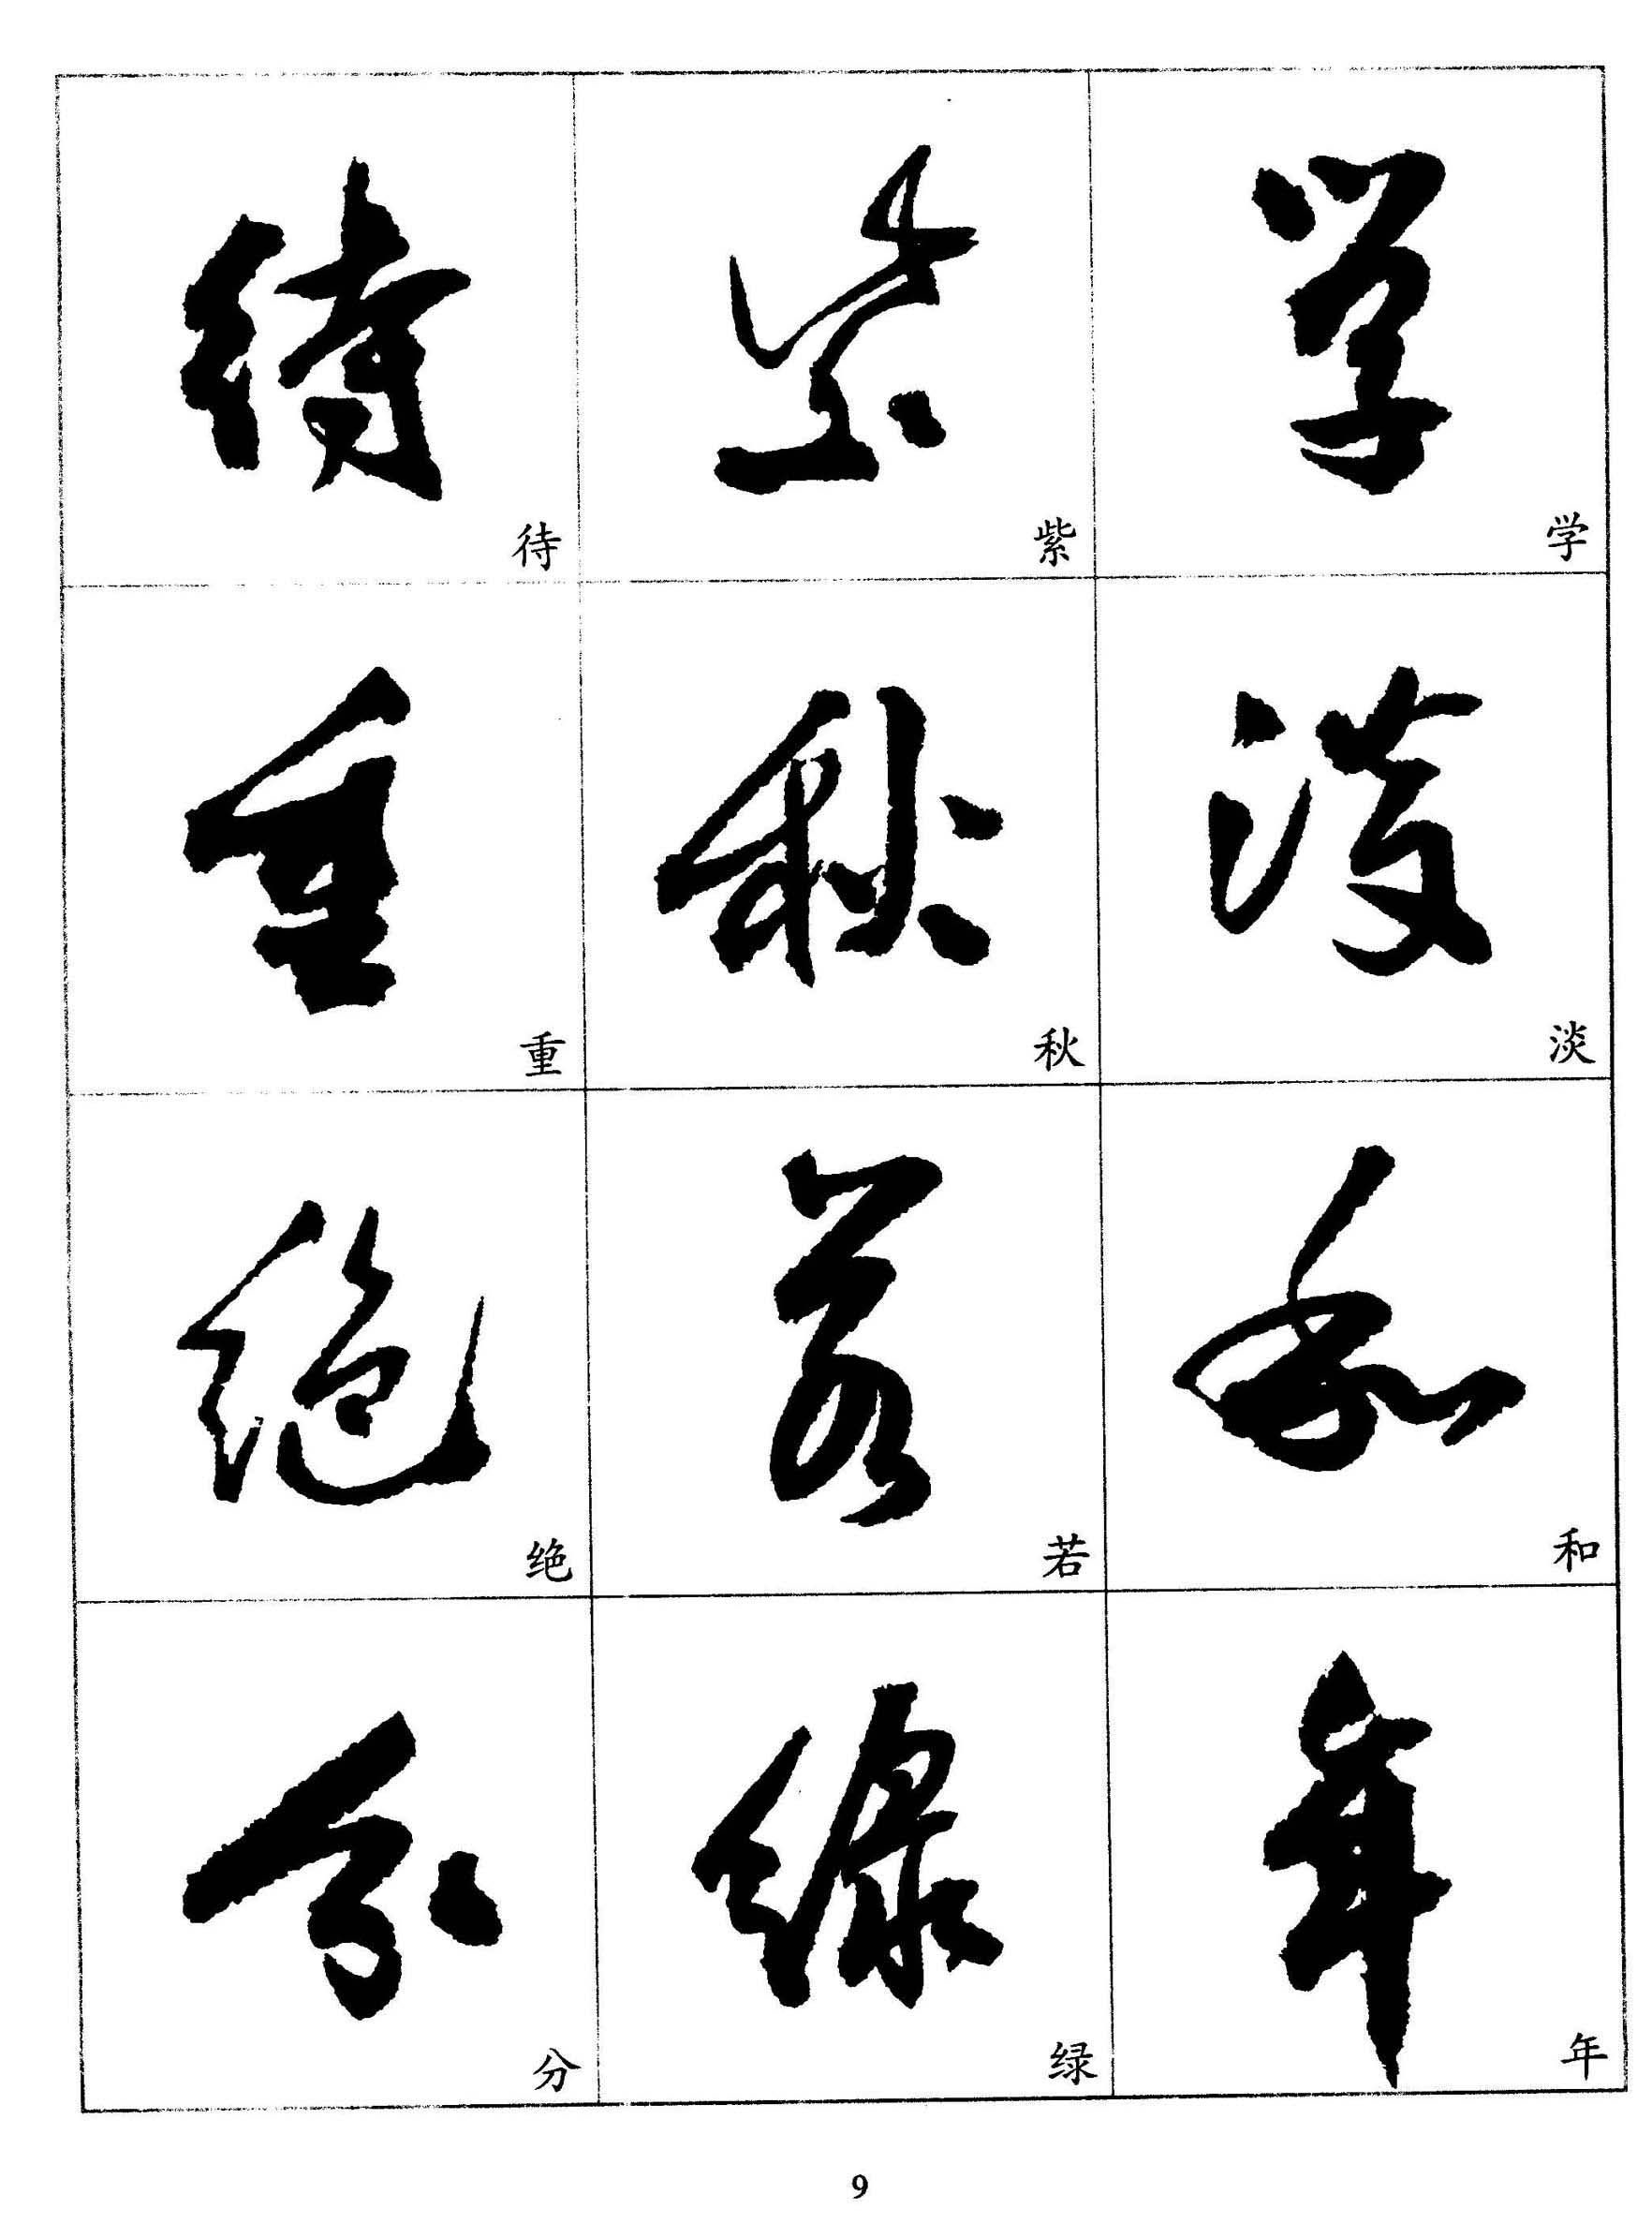 待 紫 学
重 秋 淡
绝 若 和
分 绿 年
9